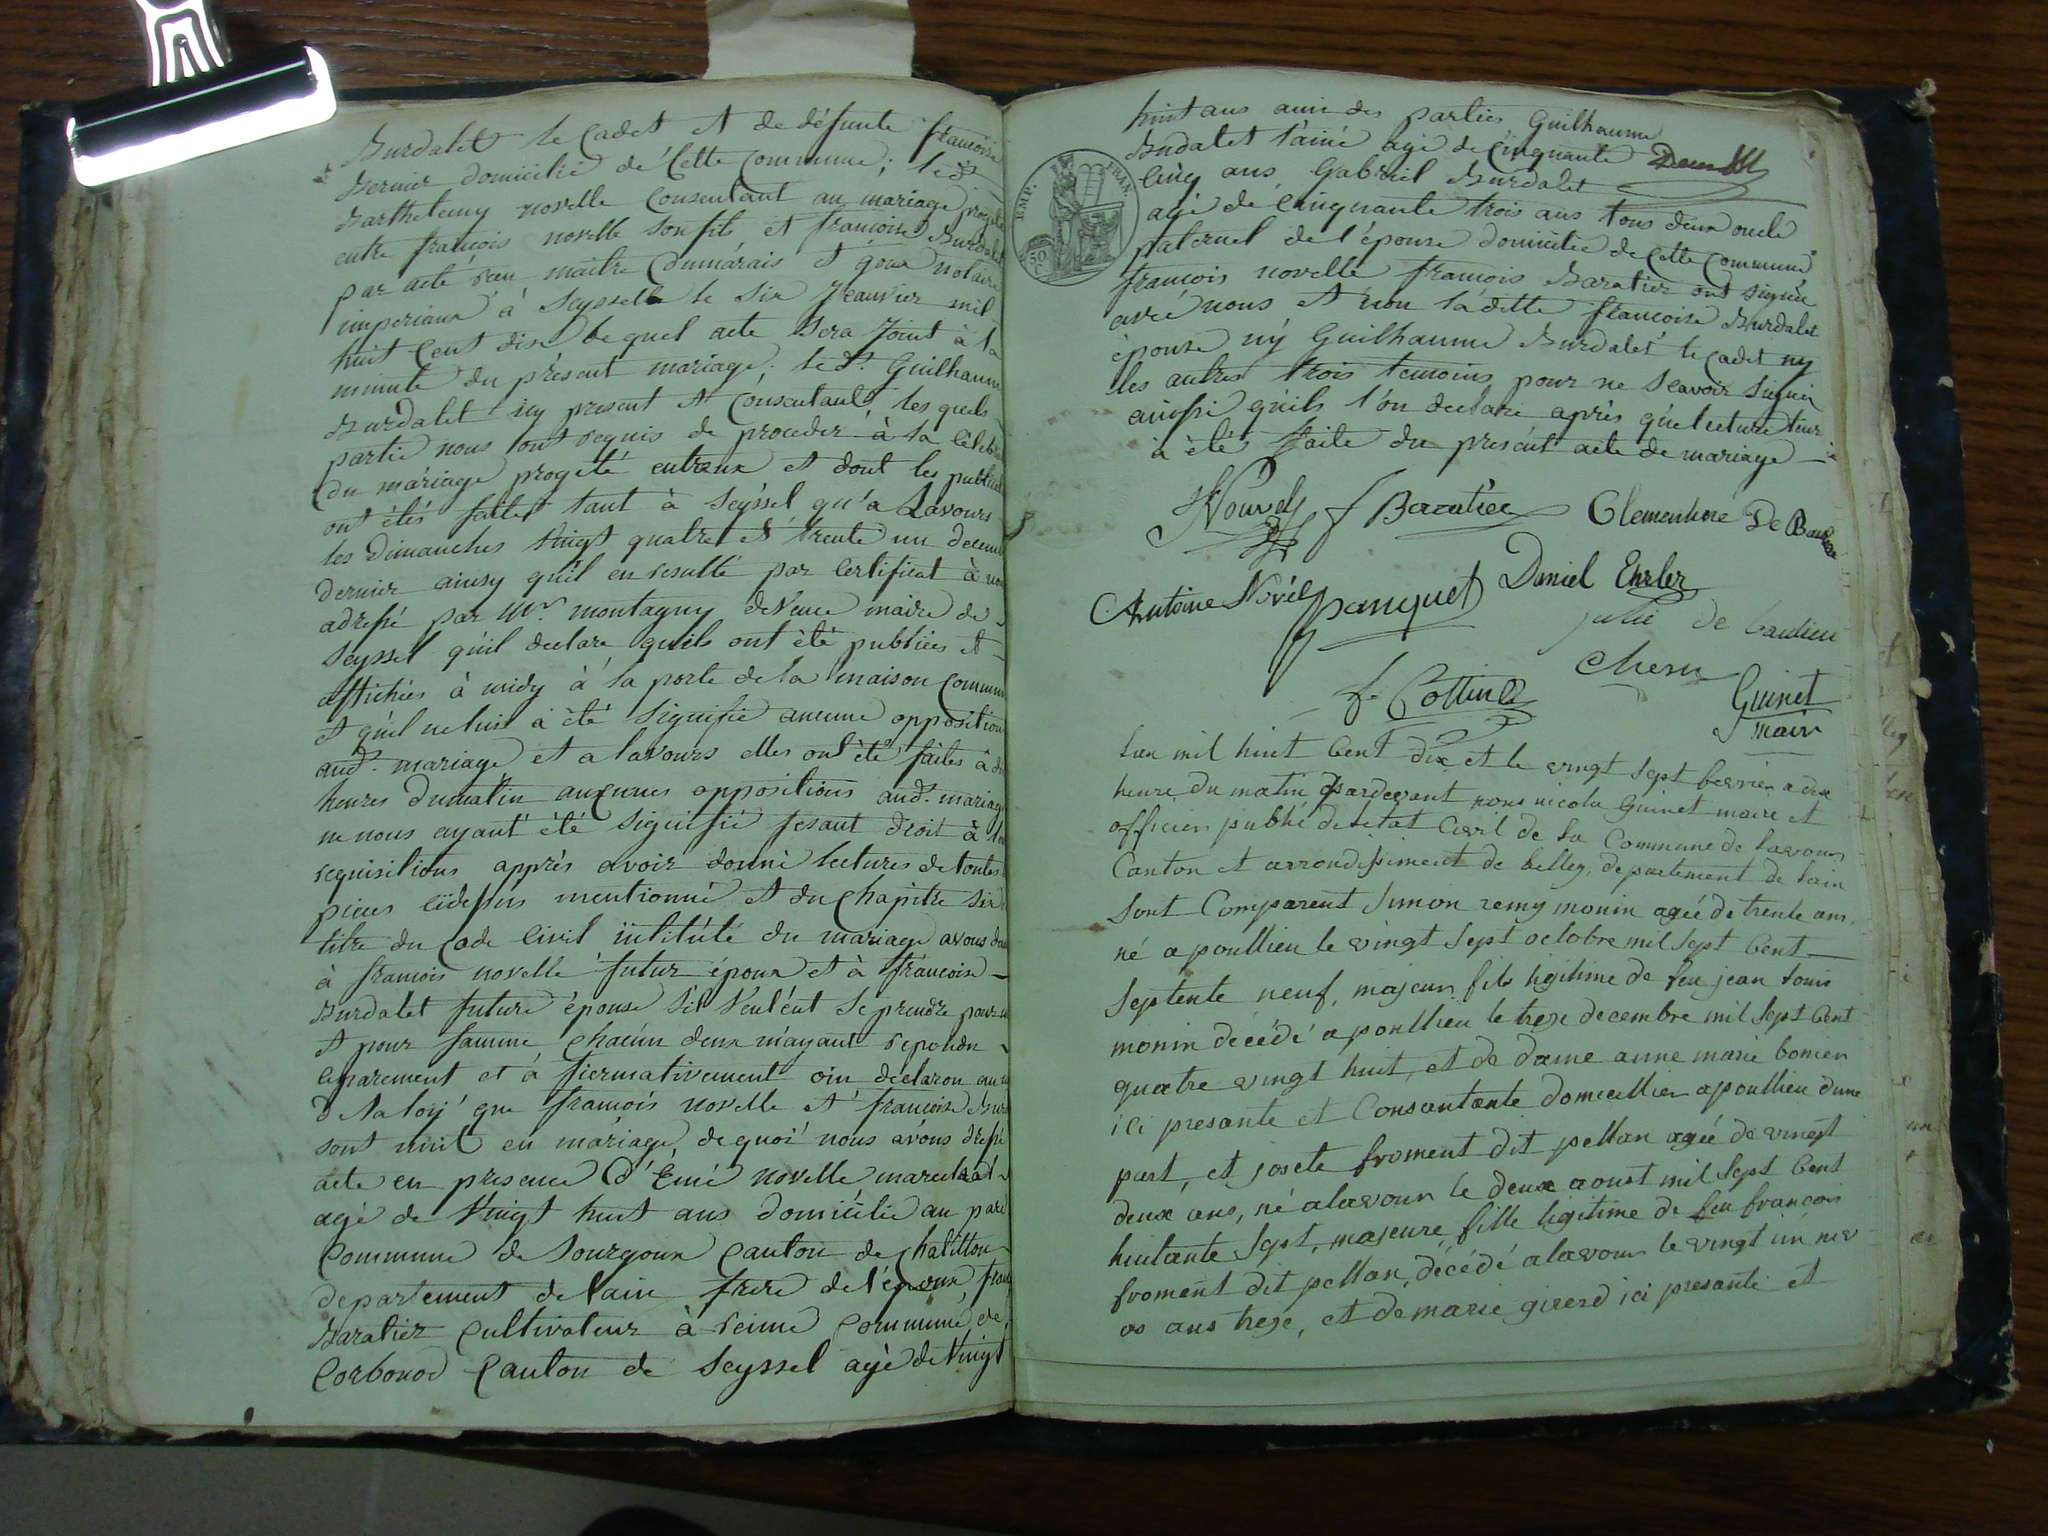 Burdalet le Cadet et de défunte francoise
Bernier domiciliè de Cette Commune; le dt
Barthelemy novelle Consentant au mariage progeté
entre françois novelle Son fils et francoise Burdalet
par acte reçu maitre Dumárais et notaire
imperiaux à Seysselle le Six Jeanvier mil
huit Cent dix lequel acte Sera Joint à la
minute du présent mariage; le dt. Guilhaume
Burdalet icy present et Consentant, les quels
partie nous ont requis de proceder à la Célebra
du mariage progeté entreux et dont les publica
ont étés faittes tant à Seyssel qu'a Lavours
les Dimanches Vingt quatre et trente un decem
dernier ainsy qu'il en resulte par Certificat à nous
adressé par Mr. montagny deVence maire de
Seyssel qu'il declare qu'ils ont été publiées et
affichées à midy à la porte de la maison Commune
et qu'il ne lui à été Signifié aucune opposition
aud. mariage et a lavours elles ont été faites à dix
heures Dumatin aucunes oppositions aud. mariage
ne nous ayant été Signifié fesant droit à leur
requisitions apprés avoir donné lectures de toutes
pieces cidessus mentionné et du Chapitre Six
titre du Code Civil intitúlé du mariage avons dem
à francois novelle futur époux et à francoise
Burdalet future épouse S'il Veulent Se prendre pour m
et pour famme Chacún deux mayant repondu
Ceparement et á fiermativement oin déclaron au n
de la loy que francois novelle et francoise Burd
sont unit en mariage, de quoi nous avóns dressé
acte en presence d'Emé novelle marechal
agé de Vingt huit ans domicilié au parc
Commune de Songoux Canton de Chatillon
departement de lain frere de l'époux, fran
Baratier Cultivateur à reime Commune de
Corbonod Canton de Seyssel agé de Vingt
huit ans ami des parties Guilhaume
Burdalet l'ainé agé de Cinquante
Cinq ans Gabriel Burdalet
agé de Cinquante trois ans tous deux oncle
paternel de l'épouse domicilié de Cette Commune
françois novelle françois Baratier ont signée
avec nous et non la ditte francoise Burdalet
épouse ny Guilhaume Burdalet le Cadet ny
les autres trois temoins pour ne Scavoir Signer
ainssi qu'ils l'on declaré aprés que lecture leur
à étés faite du présent acte de mariage
EMP. FRAN.
50 C
Nouvel f Baratier Clementine De
Antoine Novel panquet Daniel Ehrler
julie de
Chesn
f. Cottin Guinet
mair
Lan mil huit Cent dix et le vingt sept fevrier a dix
heure du matin pardevant nous nicola Guinet maire et
officier publié de letat Civil de la Commune de lavour
Canton et arrondissiment de belley, departement de lain
Sont Comparent Simon remy monin ageé de trente ans
né a poullieu le vingt Sept octobre mil Sept Cent
Septente neuf, majeur fils ligitime de feu jean louis
monin décédé a poullieu le treze decembre mil Sept Cent
quatre vingt huit, et de dame anne marie bonier
ici presante et Consantante domicellier a poullieu dune
part, et josete froment dit pellan ageé de vingt
deux ans, né alavour le deux aoust mil Sept Cent
huitante Sept, majeure, fille ligitime de feu francois
froment dit pellan, décédé alavour le vingt un niv
os ans treze, et de marie girerd ici presante et